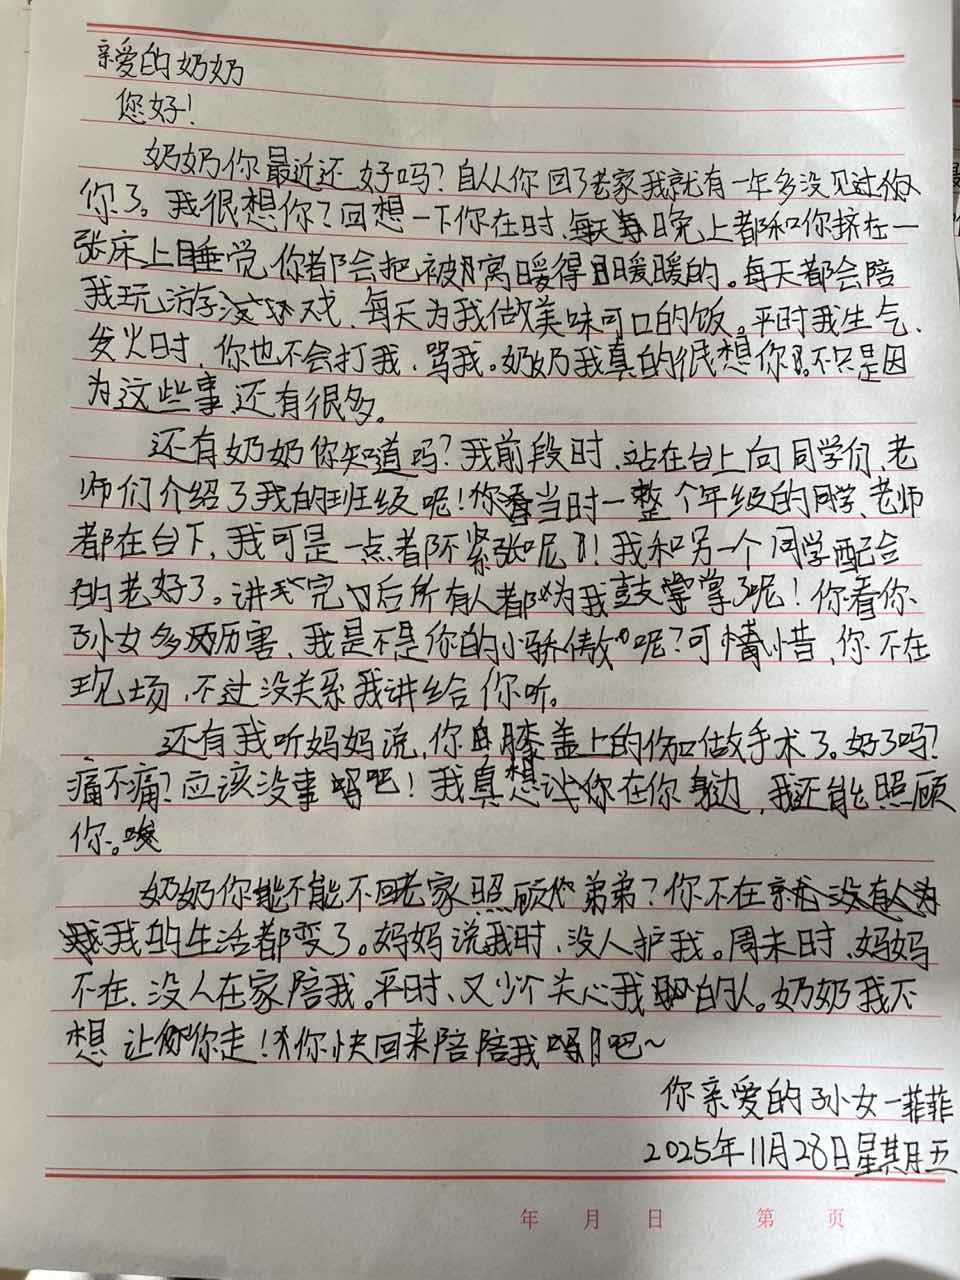 亲爱的奶奶
您好！
奶奶你最近还好吗？自从你回了老家我就有一年多没见过你
你了。我很想你？回想一下你在时、每天晚上都和你挤在一
张床上睡觉，你都会把被窝暖得暖暖的。每天都会陪
我玩游戏、每天为我做美味可口的饭。平时我生气、
发火时，你也不会打我、骂我。奶奶我真的很想你。不只是因
为这些事，还有很多。
还有奶奶你知道吗？我前段时、站在台上向同学们、老
师们介绍了我的班级呢！你看当时一整个年级的同学、老师
都在台下，我可是一点都不紧张呢！我和另一个同学配合
的老好了。讲完后所有人都为我鼓掌了呢！你看你
孙女多厉害，我是不是你的小骄傲呢？可惜，你不在
现场，不过没关系我讲给你听。
还有我听妈妈说，你膝盖上的做手术了。好了吗？
痛不痛？应该没事吧！我真想在你身边，我还能照顾
你。唉
奶奶你能不能不回老家照顾弟弟？你不在
我的生活都变了。妈妈说我时，没人护我。周末时、妈妈
不在，没人在家陪我。平时、又少个关心我的人。奶奶我不
想让你走！你快回来陪陪我吧~
你亲爱的孙女—菲菲
2025年11月28日星期五
年 月 日 第 页